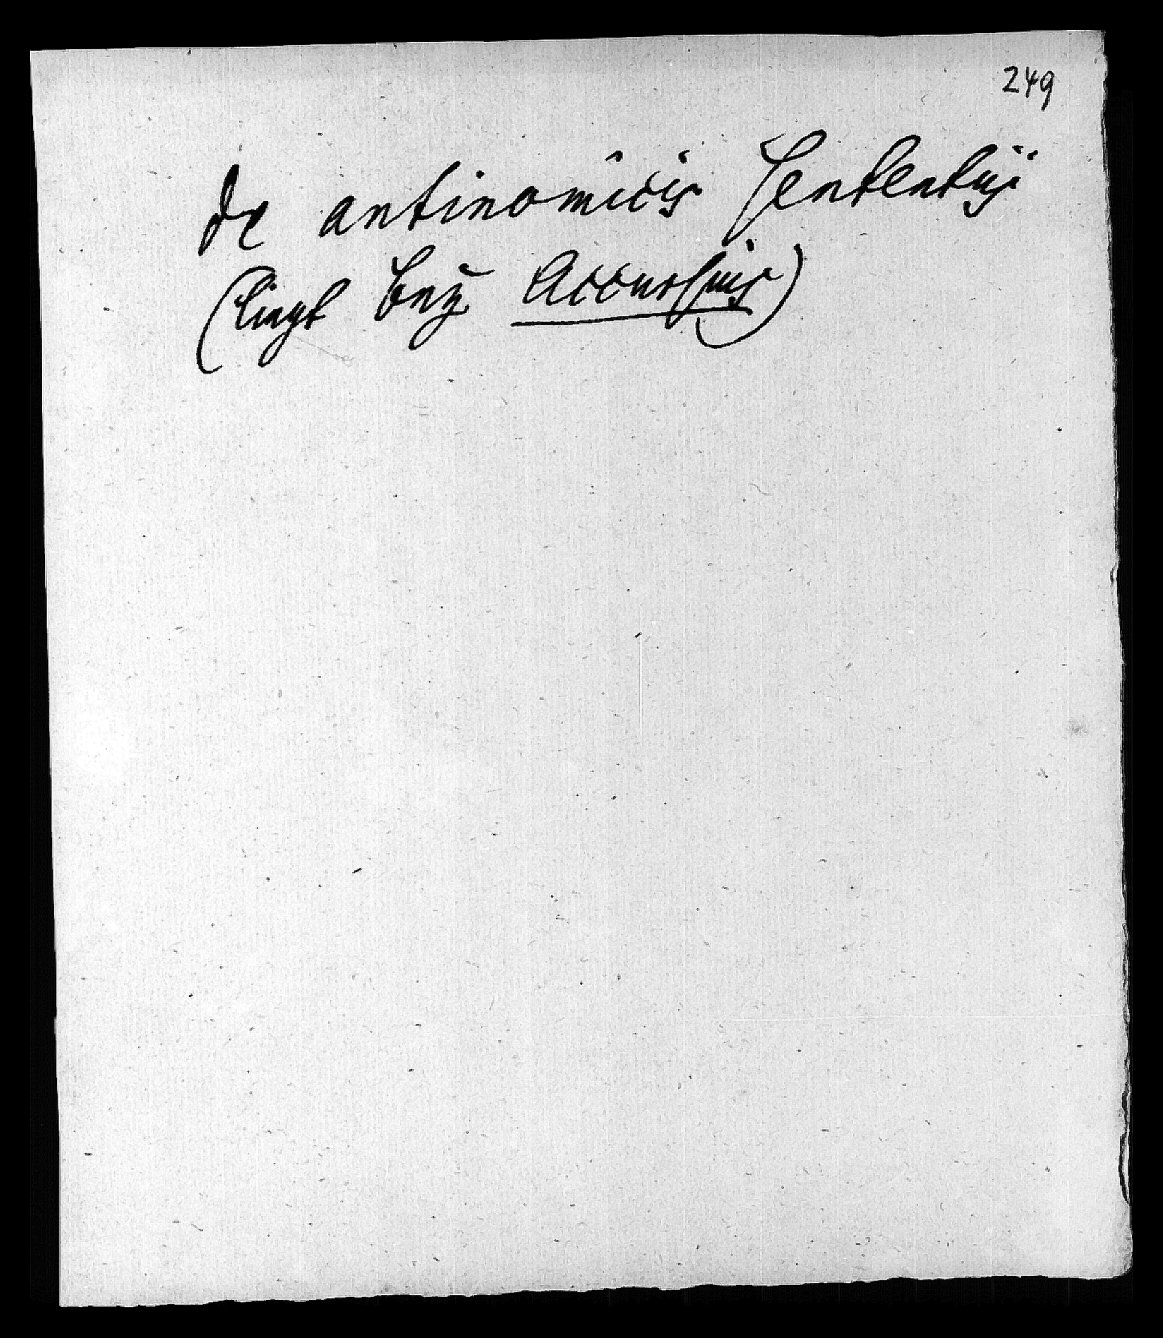 249
de antinomicis Sententijs
(liegt beÿ Accursius)